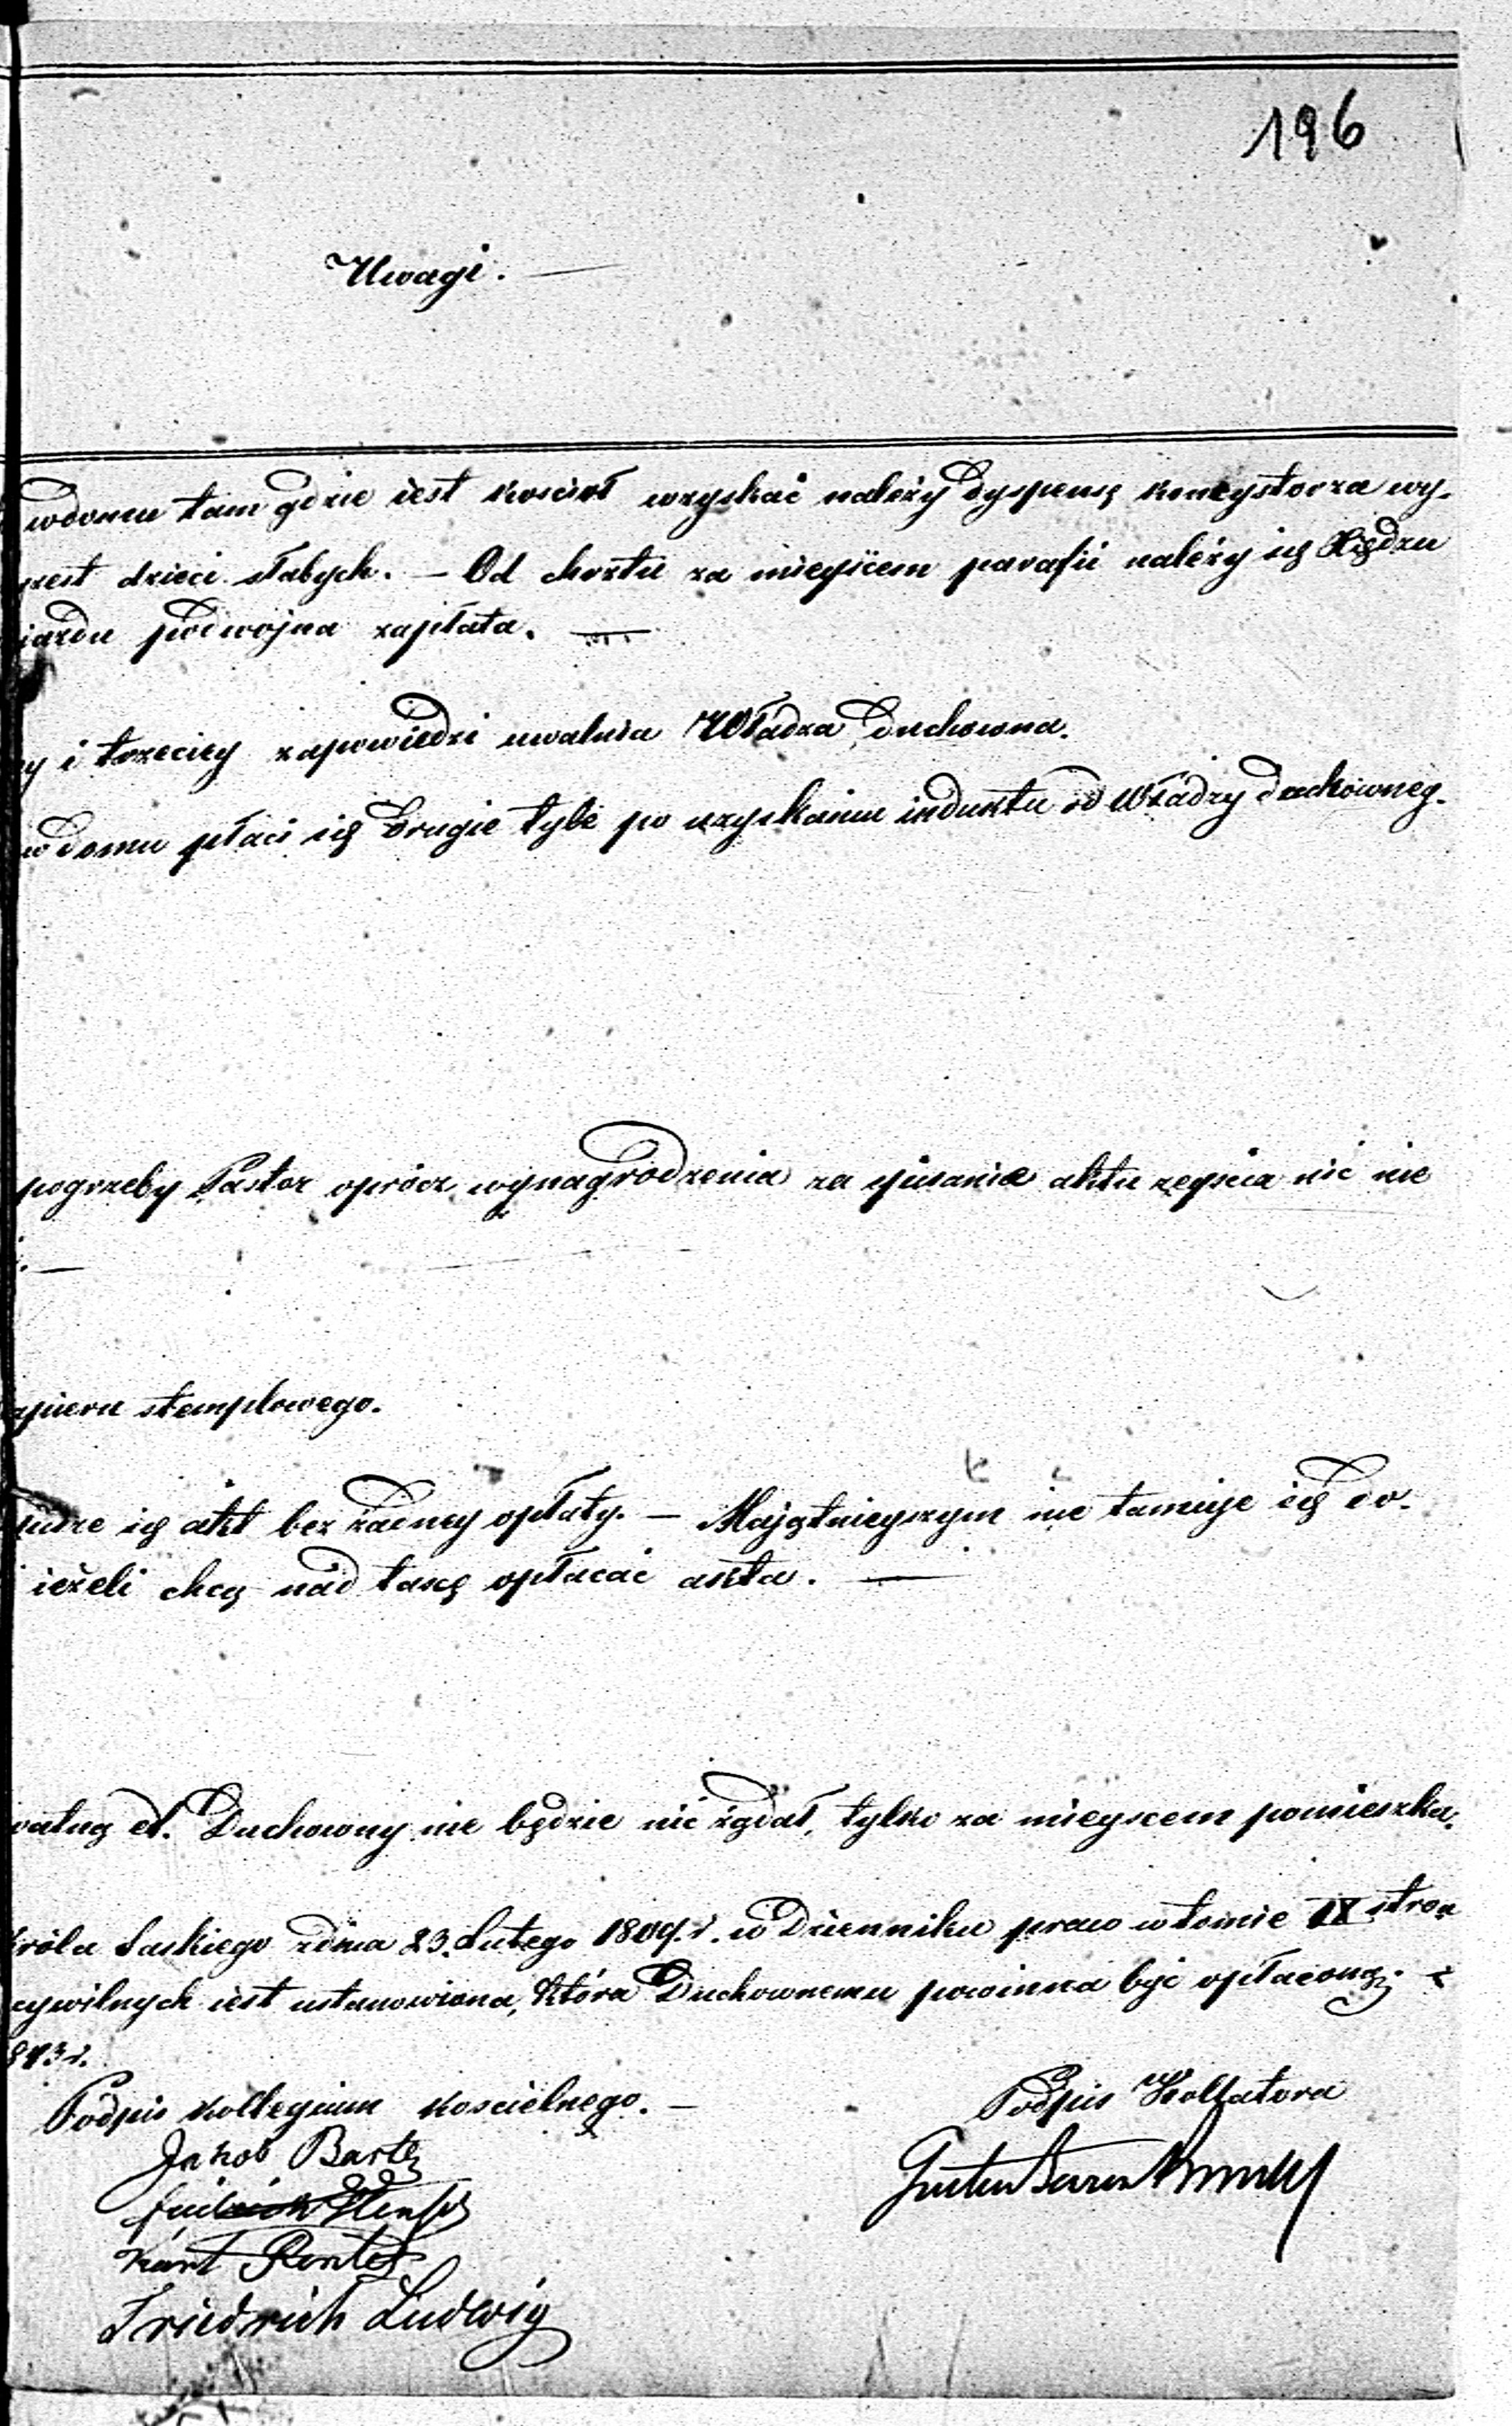 196
Uwagi. —
wdomu tam gdzie iest koscioł wzyskać należy dyspensę konzystorza wy-
rzest dzieci słabych. — Od chrztu za mieyscem parafii należy się Xiędzu
iazdu podwojna zapłata. —
y i trzeciey zapowiedzi uwalnia Władza duchowna.
w domu płaci się drugie tyle po uzyskaniu indultu od Władzy duchowney.
pogrzeby Pastor oprócz wynagrodzenia za spisanie aktu zeyscia nic nie
. —
apieru stemplowego.
się akt bez żadney opłaty. — Majętnieyszym nie tamuje się do-
ieżeli chcą nad taxę opłacać akta. —
Duchowny nie będzie nic żądał, tylko za mieyscem pomieszka-
króla Saskiego zdnia 23. Lutego 1809. r. w Dzienniku praw w tomie IX stron
cywilnych iest ustanowiona, która Duchownemu powinna być opłaconą. -
843 r.
Podpis Kollegium koscielnego. —
Podpis Kollatora
Jakob Bartz
Karl
Friedrich Ludwig